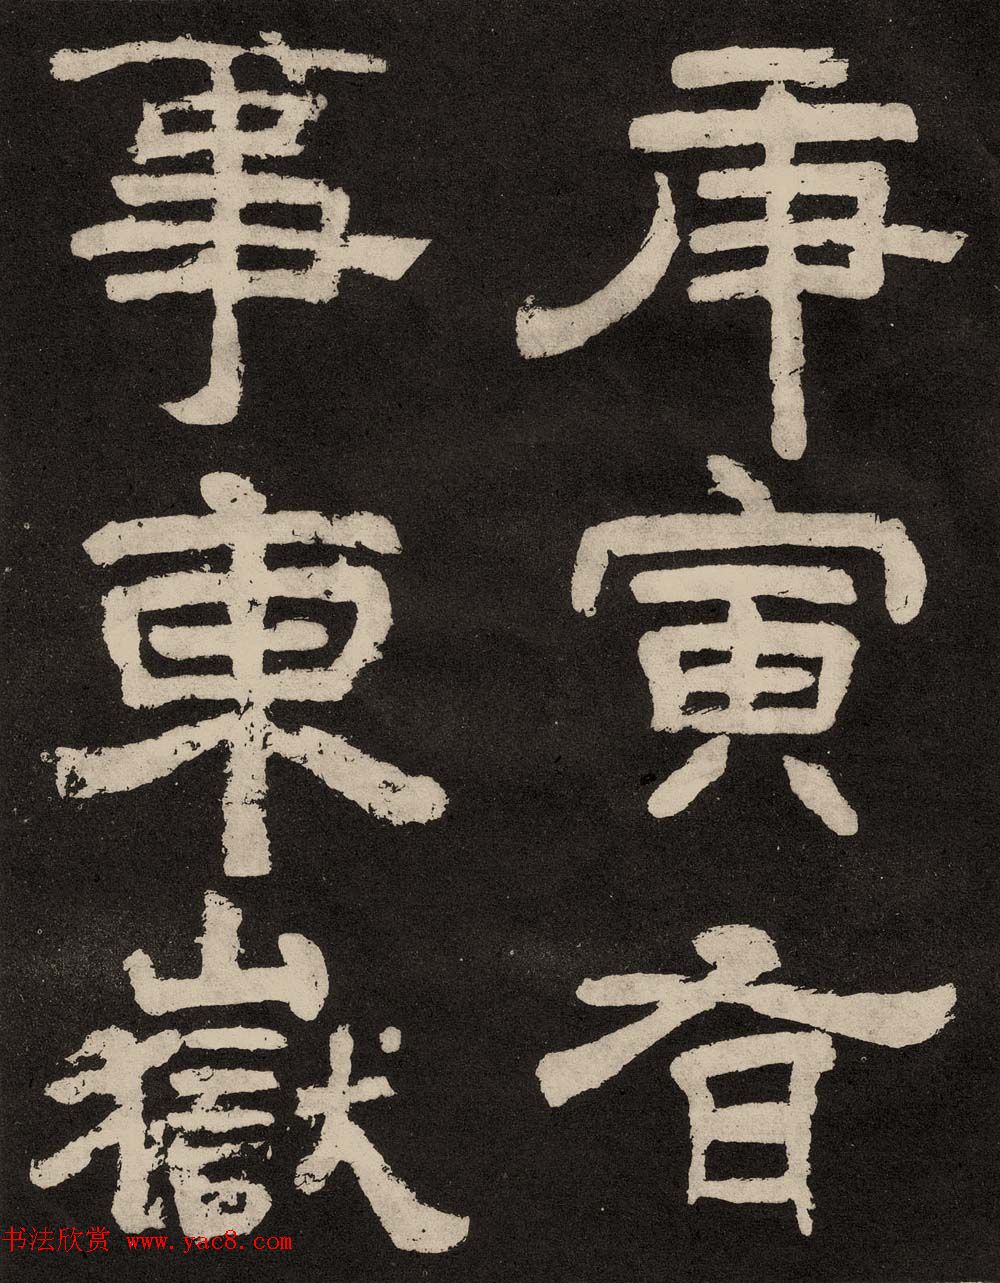 庚寅有
事東嶽
书法欣赏 www.yac8.com